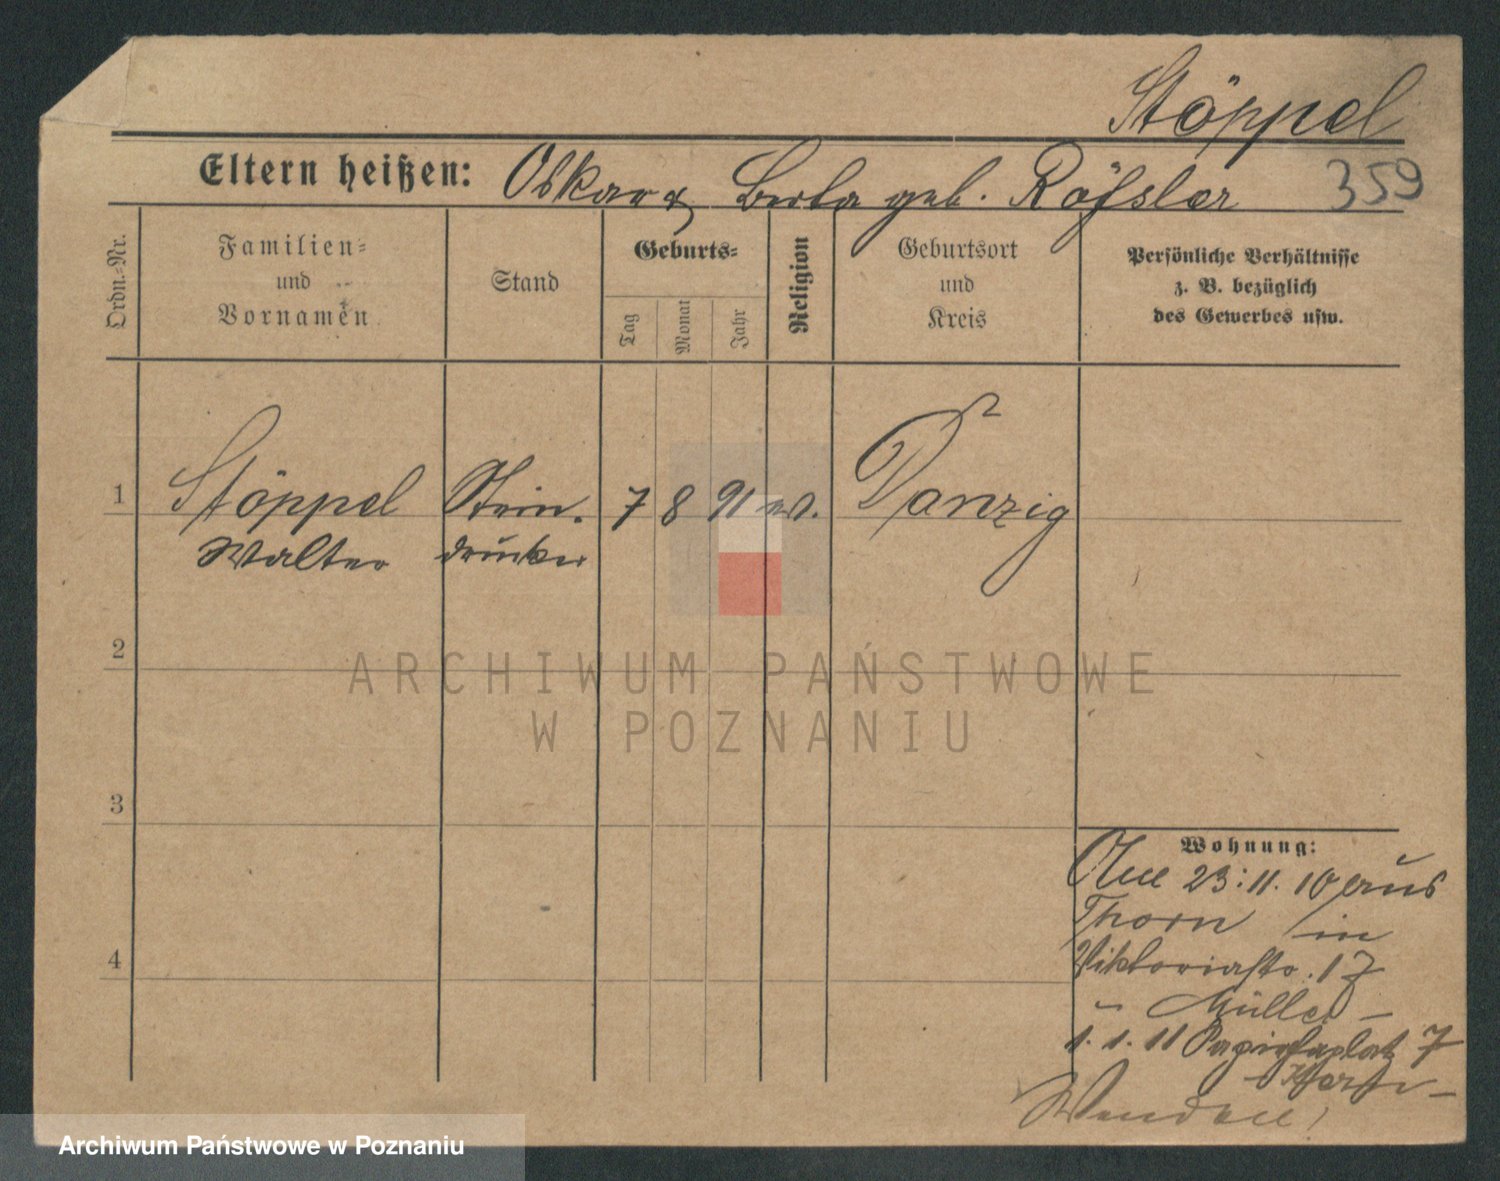 Stöppel
Eltern heißen: Oskar & Berta geb. Rößler
359
Ordn.-Nr.
Familien-
und
Vornamen
Stand
Geburts-
Tag
Monat
Jahr
Religion
Geburtsort
und
Kreis
Persönliche Verhältnisse
z. B. bezüglich
des Gewerbes usw.
1 Stöppel Stein. 7 8 91 ev. Danzig
Walter drucker
2
3
4
Wohnung:
23.11.10 aus
Thorn in
Viktoriastr. 17
- Müller -
1.1.11 7
Wenden!
ARCHIWUM PAŃSTWOWE
W POZNANIU
Archiwum Państwowe w Poznaniu